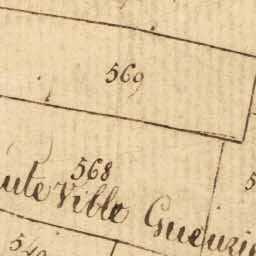 569
568
ute Ville Gueuzi
5
540